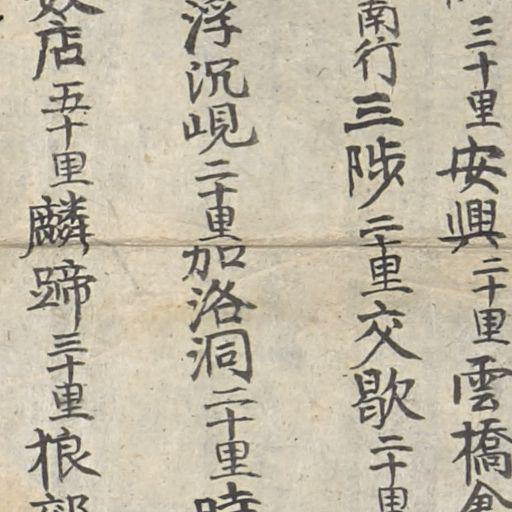 三十里安興二十里雲橋
南行三陟二十里交歇二十里
浮沉峴二十里加洛洞二十里時
店五十里麟蹄三十里㮾部